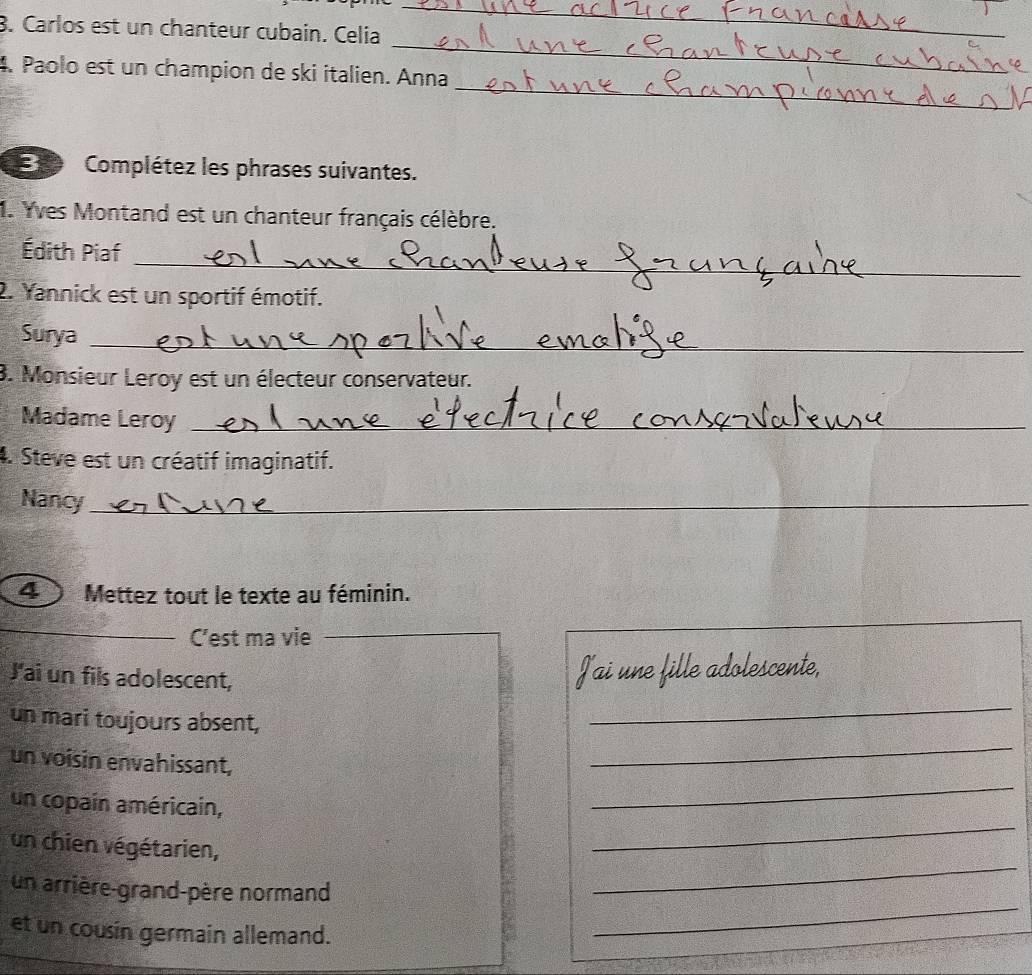 est une actrice Francaise
3. Carlos est un chanteur cubain. Celia est une chanteuse cubaine
4. Paolo est un champion de ski italien. Anna est une championne de sk
3 Complétez les phrases suivantes.
1. Yves Montand est un chanteur français célèbre.
Édith Piaf est une chanteuse française
2. Yannick est un sportif émotif.
Surya est une sportive emotive
3. Monsieur Leroy est un électeur conservateur.
Madame Leroy est une électrice conservateuse
4. Steve est un créatif imaginatif.
Nancy est une
4 Mettez tout le texte au féminin.
C'est ma vie
J'ai un fils adolescent,
J'ai une fille adolescente,
un mari toujours absent,
un voisin envahissant,
un copain américain,
un chien végétarien,
un arrière-grand-père normand
et un cousin germain allemand.